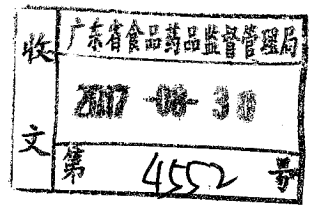 收文
广东省食品药品监督管理局
2007 -08- 30
第 4552 号